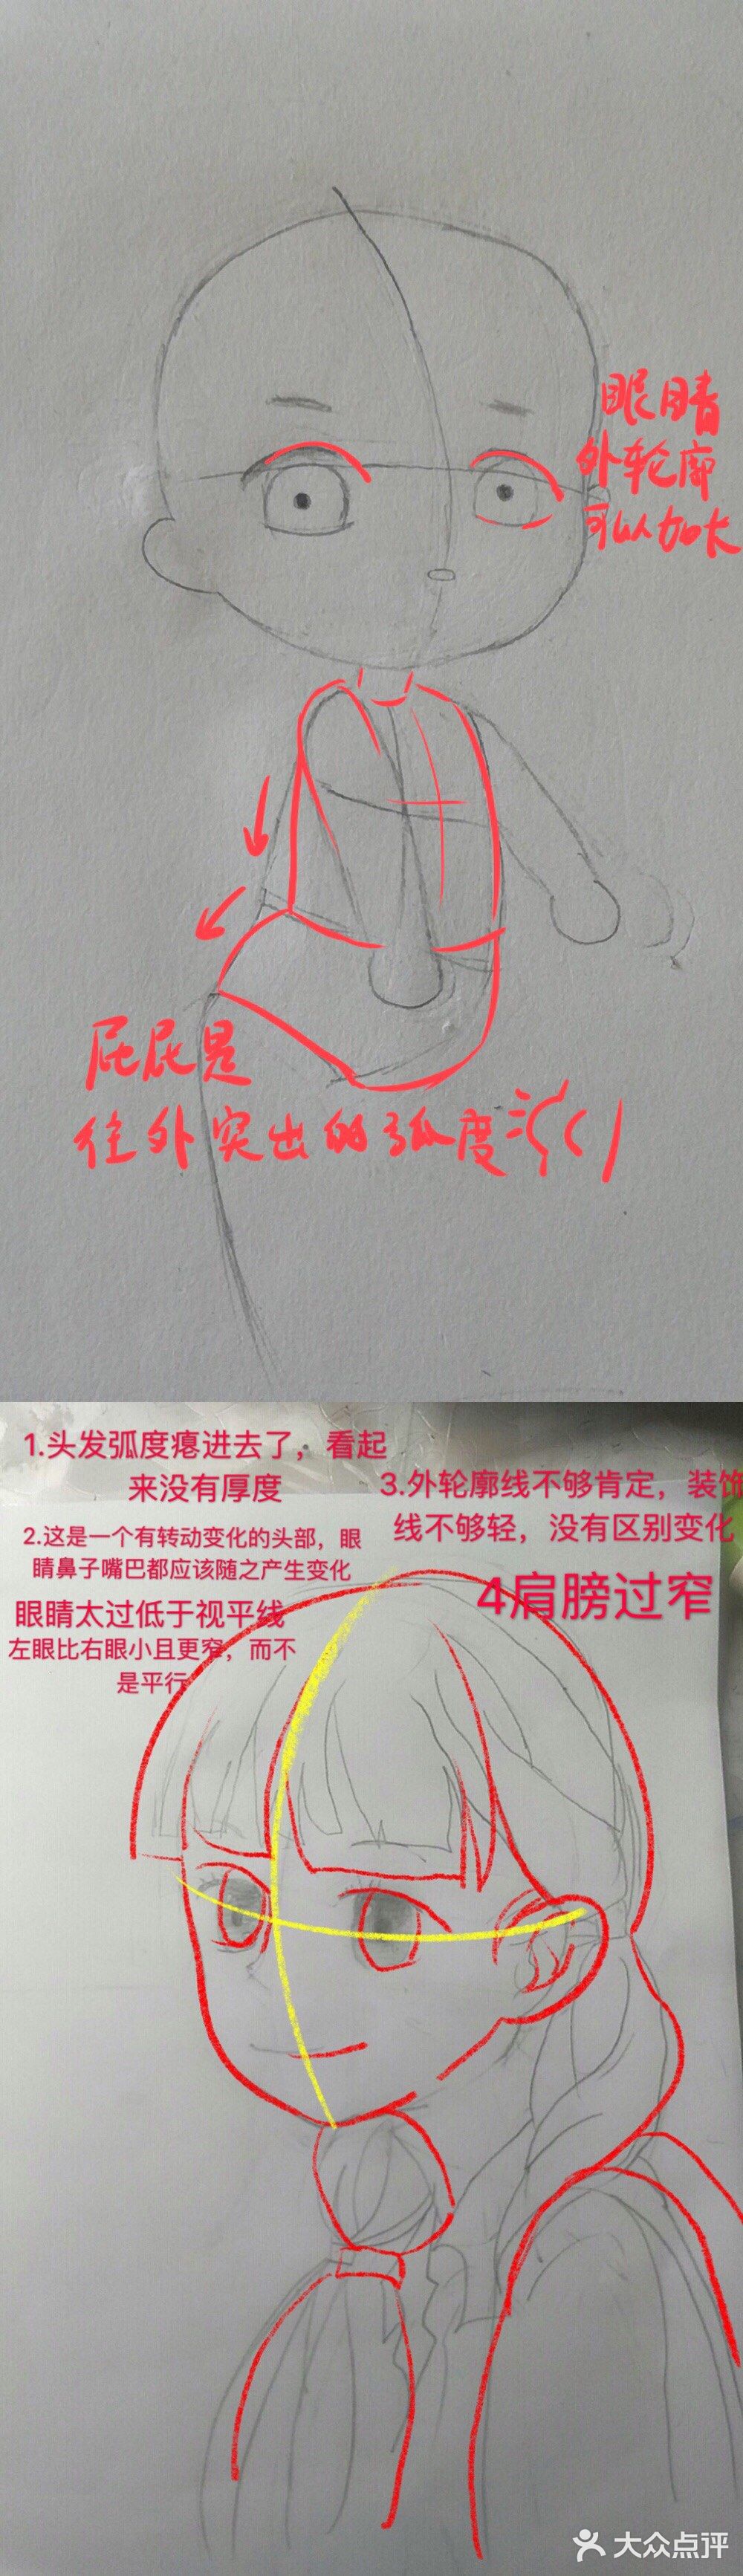 眼睛
外轮廓
可以加长
屁屁是
往外突出的弧度
1.头发弧度瘪进去了，看起
来没有厚度
2.这是一个有转动变化的头部，眼
睛鼻子嘴巴都应该随之产生变化
眼睛太过低于视平线
左眼比右眼小且更窄，而不
是平行
3.外轮廓线不够肯定，装饰
线不够轻，没有区别变化
4肩膀过窄
大众点评